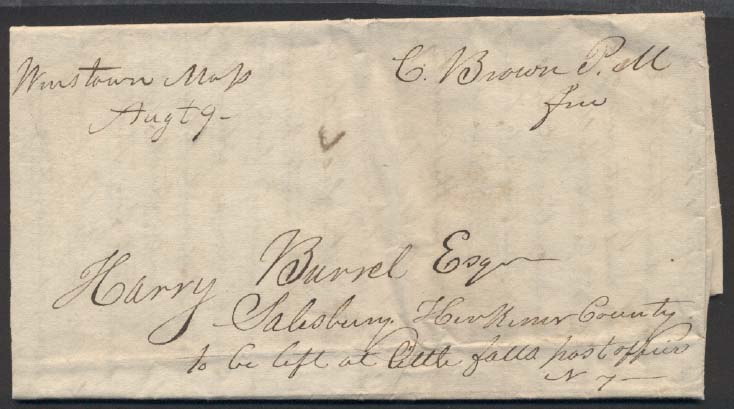 Winstown Mass
Augt 9-
C. Brown P. M
free
Harry Burrel Esqr
Salesbury Herkimer County
to be left at Little falls post office
N Y